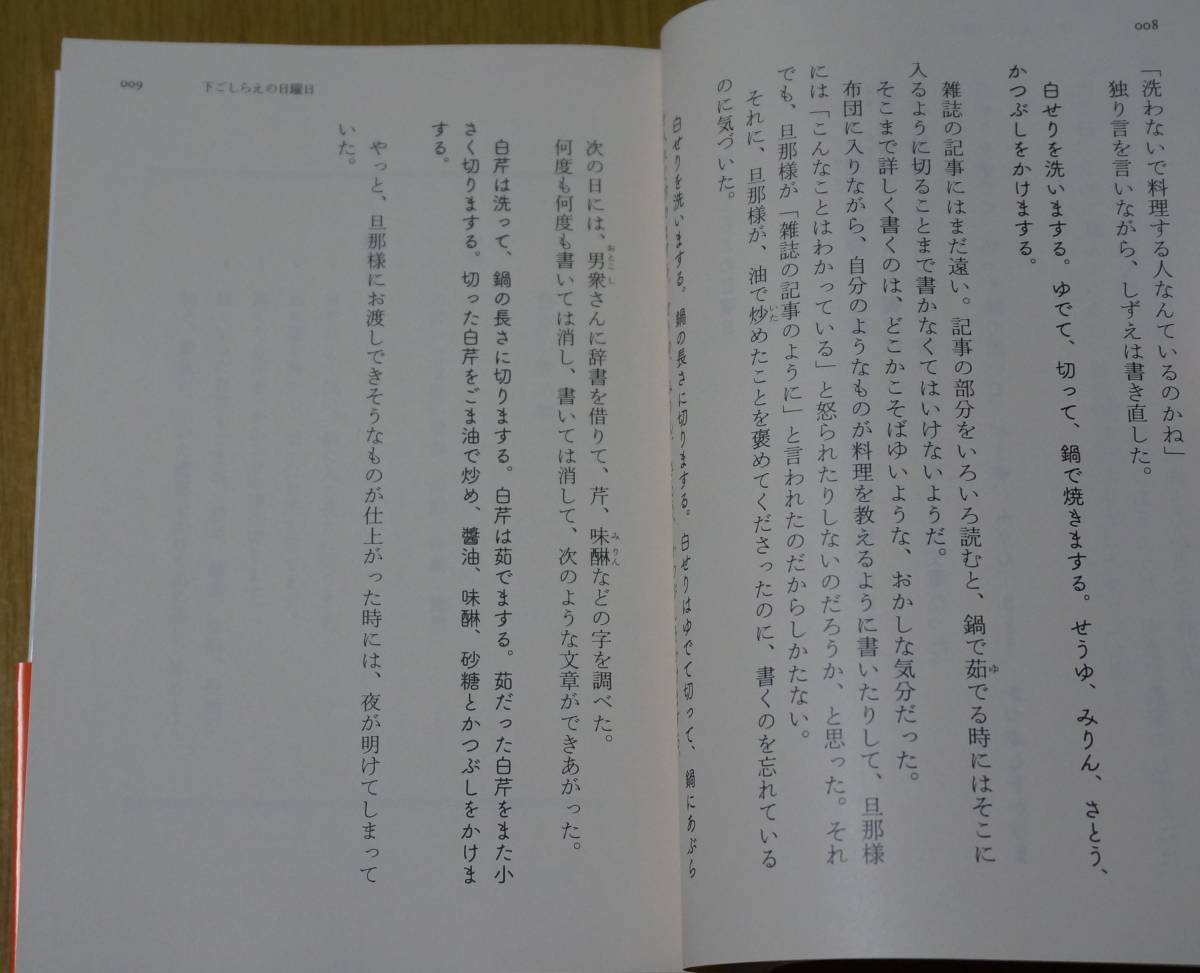 008
「洗わないで料理する人なんているのかね」
独り言を言いながら、しずえは書き直した。
白せりを洗いまする。ゆでて、切って、鍋で焼きまする。せうゆ、みりん、さとう、
かつぶしをかけまする。
雑誌の記事にはまだ遠い。記事の部分をいろいろ読むと、鍋で茹でる時にはそこに
入るように切ることまで書かなくてはいけないようだ。
そこまで詳しく書くのは、どこかこそばゆいような、おかしな気分だった。
布団に入りながら、自分のようなものが料理を教えるように書いたりして、旦那様
には「こんなことはわかっている」と怒られたりしないのだろうか、と思った。それ
でも、旦那様が「雑誌の記事のように」と言われたのだからしかたない。
それに、旦那様が、油で炒めたことを褒めてくださったのに、書くのを忘れている
のに気づいた。
白せりを洗いまする。鍋の長さに切りまする。白せりはゆでて切って、鍋にあぶら
009
下ごしらえの日曜日
次の日には、男衆さんに辞書を借りて、芹、味醂などの字を調べた。
何度も何度も書いては消し、書いては消して、次のような文章ができあがった。
白芹は洗って、鍋の長さに切りまする。白芹は茹でまする。茹だった白芹をまた小
さく切りまする。切った白芹をごま油で炒め、醬油、味醂、砂糖とかつぶしをかけま
する。
やっと、旦那様にお渡しできそうなものが仕上がった時には、夜が明けてしまって
いた。